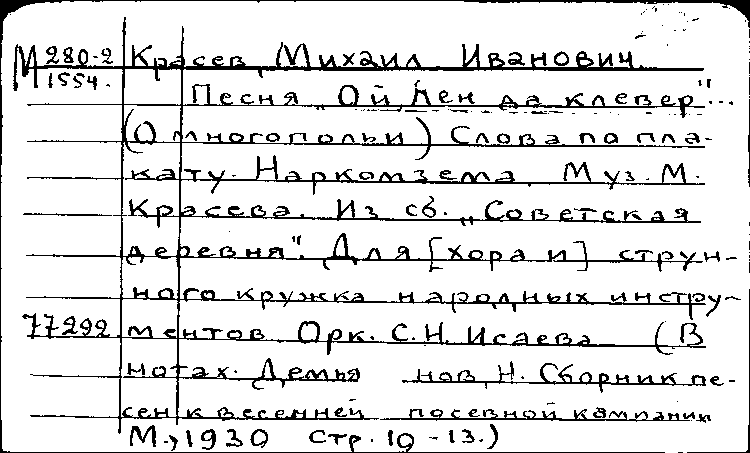 М 280-2 Красев, Михаил Иванович.
1554.
Песня „Ой, лен да клевер"...
(О многопольи) Слова по пла-
кату. Наркомзема. Муз. М.
Красева. Из сб. „Советская
деревня". Для [хора и] струн-
ного кружка народных инстру-
77292 ментов Орк. С.Н. Исаева (В
нотах. Демья нов, Н. Сборник пе-
сен к весенней посевной кампании
М., 1930 стр. 10-13.)